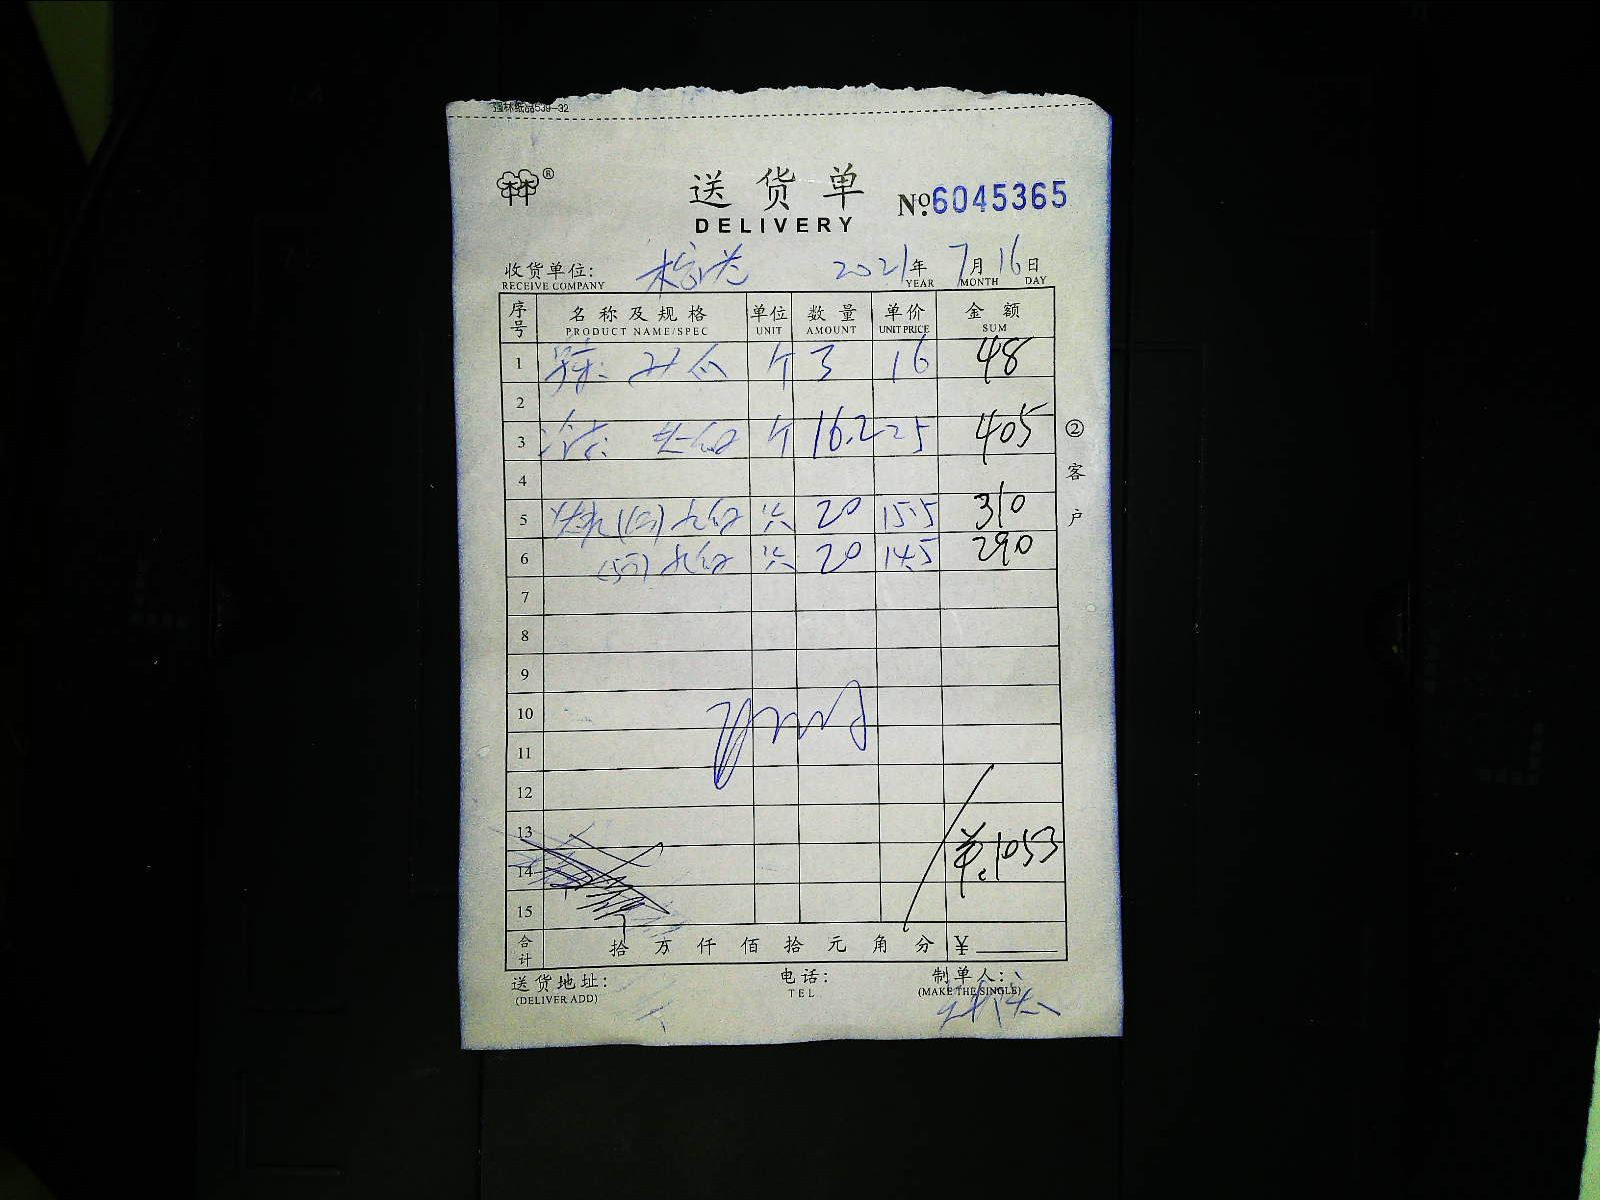 强林纸品539-32
林®
送货单
DELIVERY
№6045365
收货单位: 2021年7月16日
RECEIVE COMPANY YEAR MONTH DAY
序号 名称及规格 单位 数量 单价 金额
PRODUCT NAME/SPEC UNIT AMOUNT UNIT PRICE SUM
1 个 3 16 48
2
3 个 16.2 25 405
4
5 20 15.5 310
6 20 14.5 290
7
8
9
10
11
12
13
1053
14
15
合计 拾万仟佰拾元角分 ¥
送货地址: 电话: 制单人:
(DELIVER ADD) TEL (MAKE THE SINGLE)
②客户